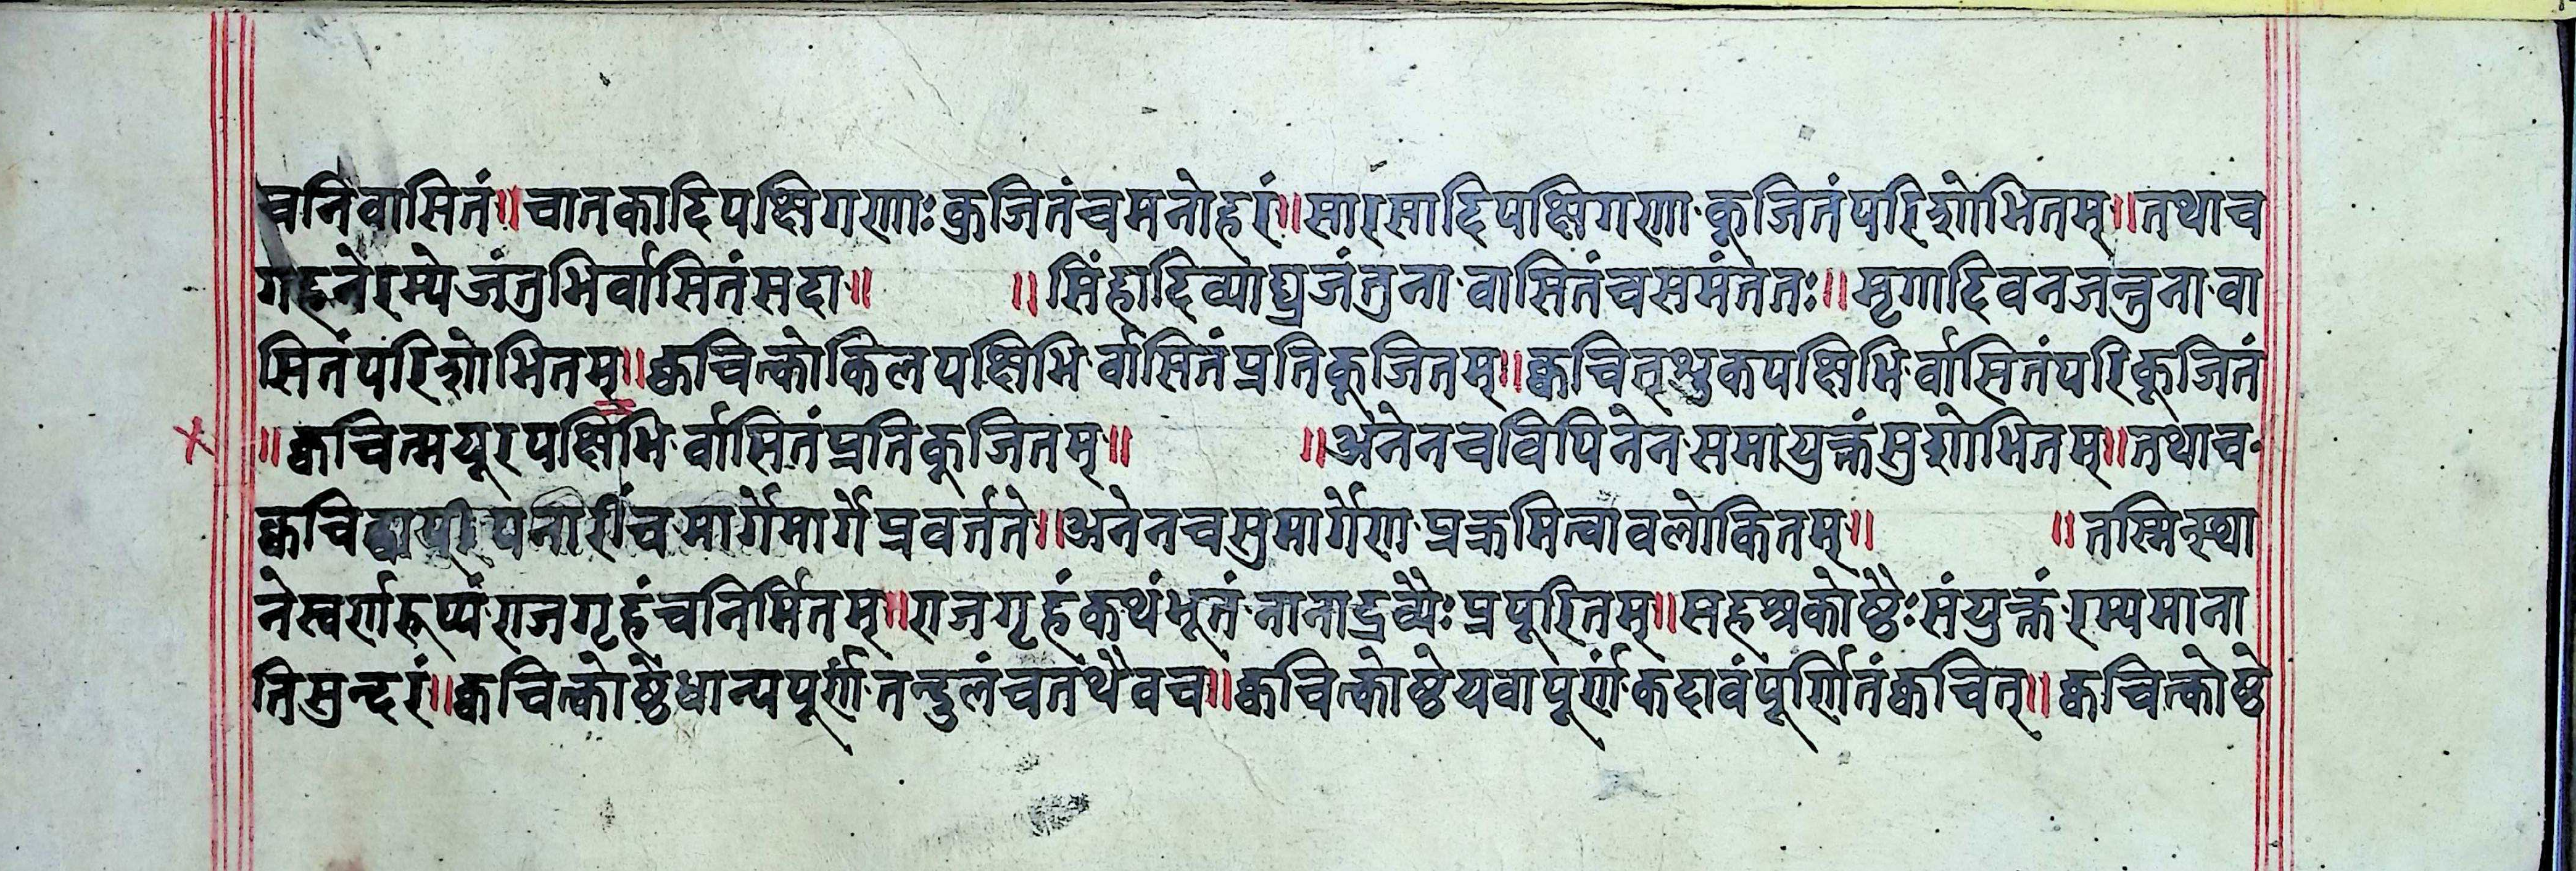 चनिवासितं॥चातकादिपक्षिगणाःकुजितंचमनोहरं॥सारसादिपक्षिगणा·कूजितंपरिशोभितम्॥तथाच
गहनेरम्येजंतुभिर्वासितंसदा॥ ॥सिंहादिव्याघ्रजंतुना·वासितंचसमंततः॥मृगादिवनजन्तुना·वा
सितंपरिशोभितम्॥क्वचित्कोकिलपक्षिभि·र्वासितंप्रतिकूजितम्॥क्वचित्शुकपक्षिभि·र्वासितंपरिकूजितं
॥क्वचित्मयूरपक्षिभि·र्वासितंप्रतिकूजितम्॥ ॥अनेनचविपिनेन·समायुक्तंसुशोभितम्॥तथाच·
मार्गेमार्गेप्रवर्त्तते॥अनेनचसुमार्गेण·प्रक्रमित्वावलोकितम्॥ ॥तस्मिन्स्था
नेस्वर्णरूप्यं·राजगृहंचनिर्मितम्॥राजगृहंकथंभूतं·नानाद्रव्यैःप्रपूरितम्॥सहश्रकोष्ठैःसंयुक्तं·रम्यमाना
तिसुन्दरं॥क्वचित्कोष्ठेधान्यपूर्णं·तन्दुलंचतथैवच॥क्वचित्कोष्ठेयवापूर्णं·कदावंपूर्णितंक्वचित्॥क्वचित्कोष्ठे